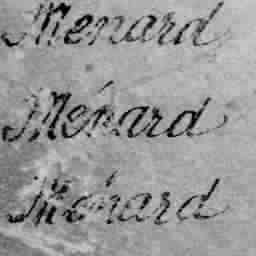 Menard
Ménard
Ménard